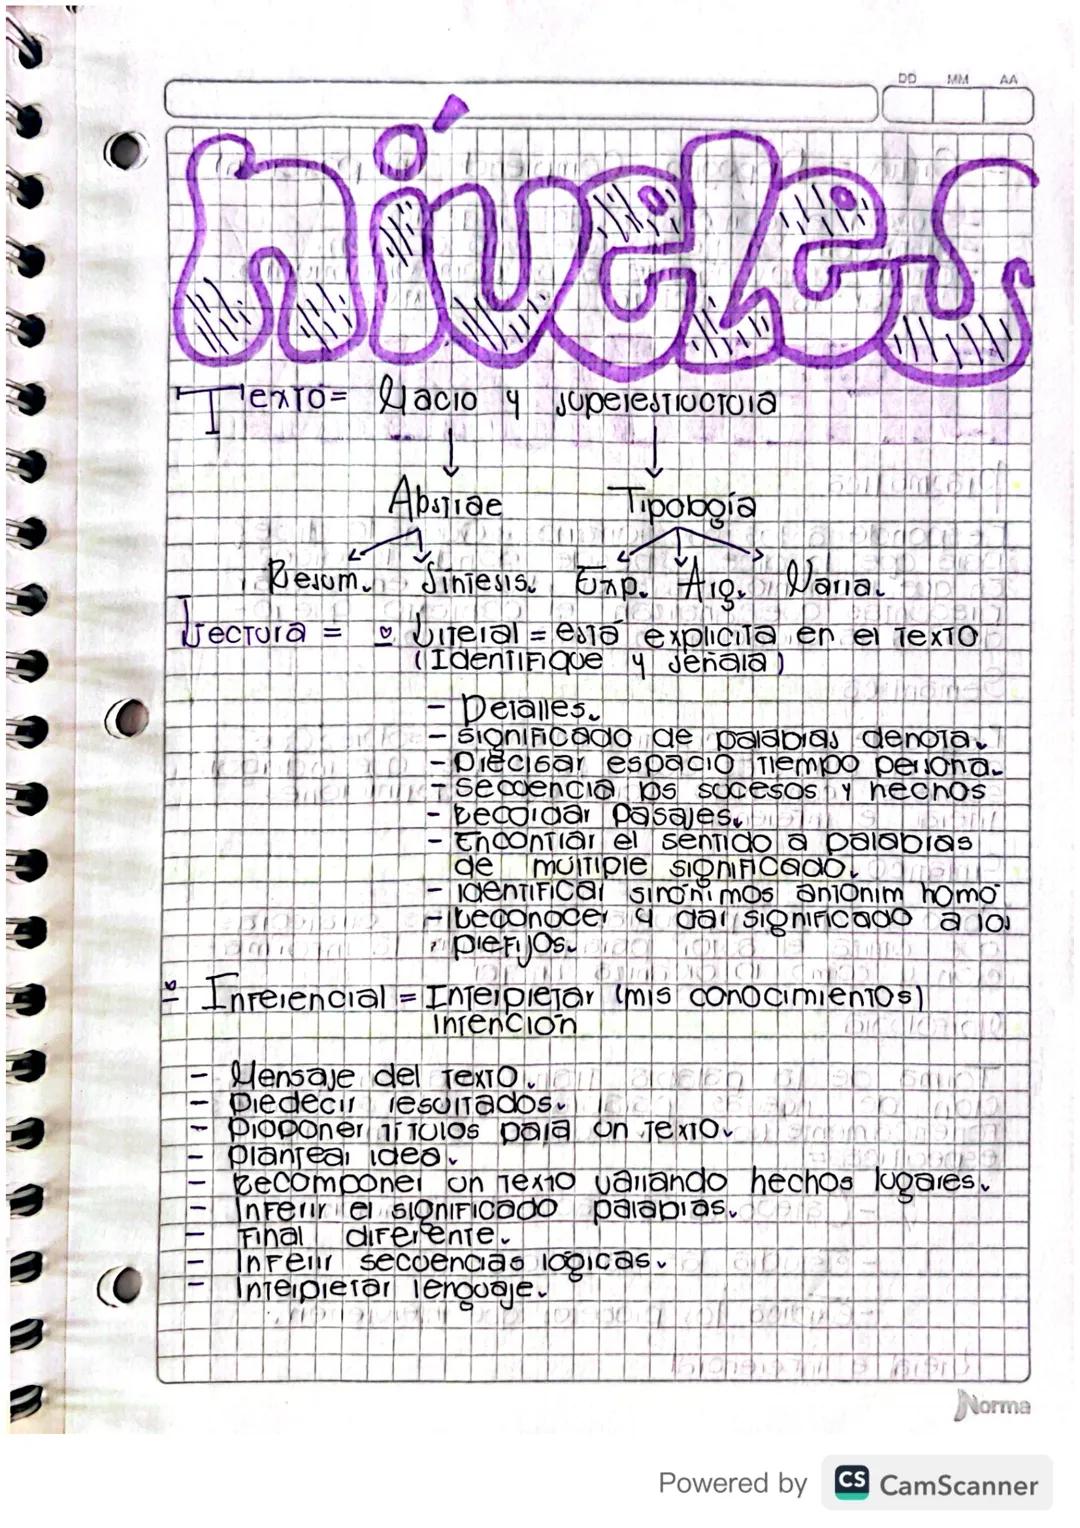 DD MM AA
Niveles
Texto = Macro y superestructura
Abstrae Tipología
Resum. Síntesis. Exp. Arg. Narra.
Lectura = Literal = está explicita en el texto
(Identifique y señala)
- Detalles.
- significado de palabras denota.
- Precisar espacio tiempo persona.
- secuencia los sucesos y hechos
- Recordar pasajes.
- Encontrar el sentido a palabras
de multiple significado.
- identificar sinónimos antonim homo
- Reconocer y dar significado a los
prefijos.
Inferencial = Interpretar (mis conocimientos)
intención
- Mensaje del texto.
- Predecir resultados.
- Proponer títulos para un texto.
- Plantear idea.
- Recomponer un texto variando hechos lugares.
- Inferir el significado palabras.
- Final diferente.
- Inferir secuencias lógicas.
- Interpretar lenguaje.
Norma
Powered by CS CamScanner